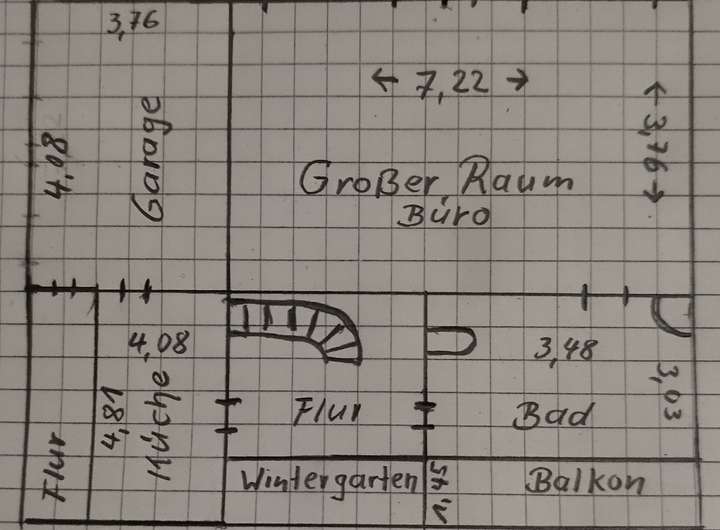 3,76
← 7,22 →
4,08
Garage
← 3,76 →
Großer Raum
Büro
4,08
3,48
4,81
Küche
3,03
Flur
Flur
Bad
Wintergarten
Balkon